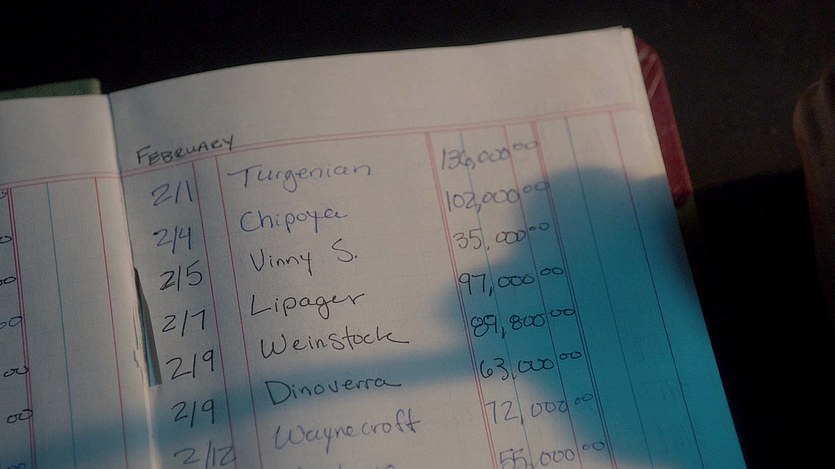 FEBRUARY
2/1 Turgenian 136,000⁰⁰
2/4 Chipoya 102,000⁰⁰
2/5 Vinny S. 35,000⁰⁰
2/7 Lipager 97,000⁰⁰
2/9 Weinstock 89,800⁰⁰
2/9 Dinoverra 63,000⁰⁰
2/12 Waynecroft 72,000⁰⁰
55,000⁰⁰